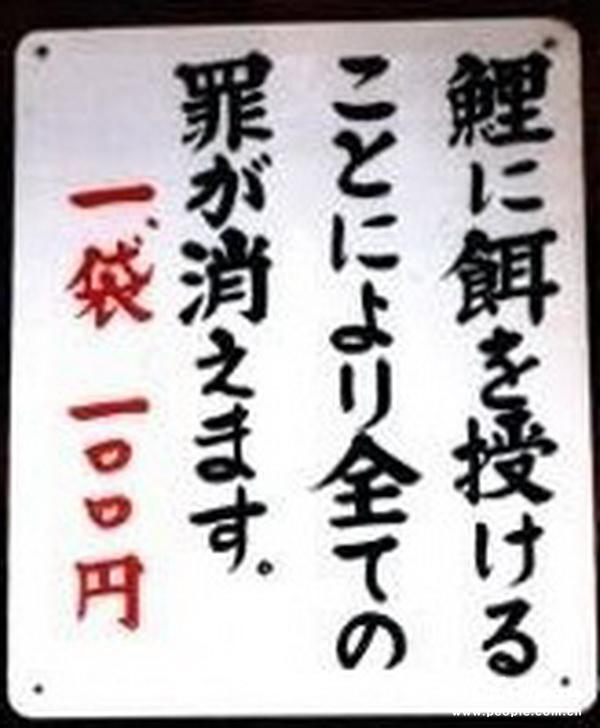 鯉に餌を授ける
ことにより全ての
罪が消えます。
一袋 一〇〇円
www.people.com.cn